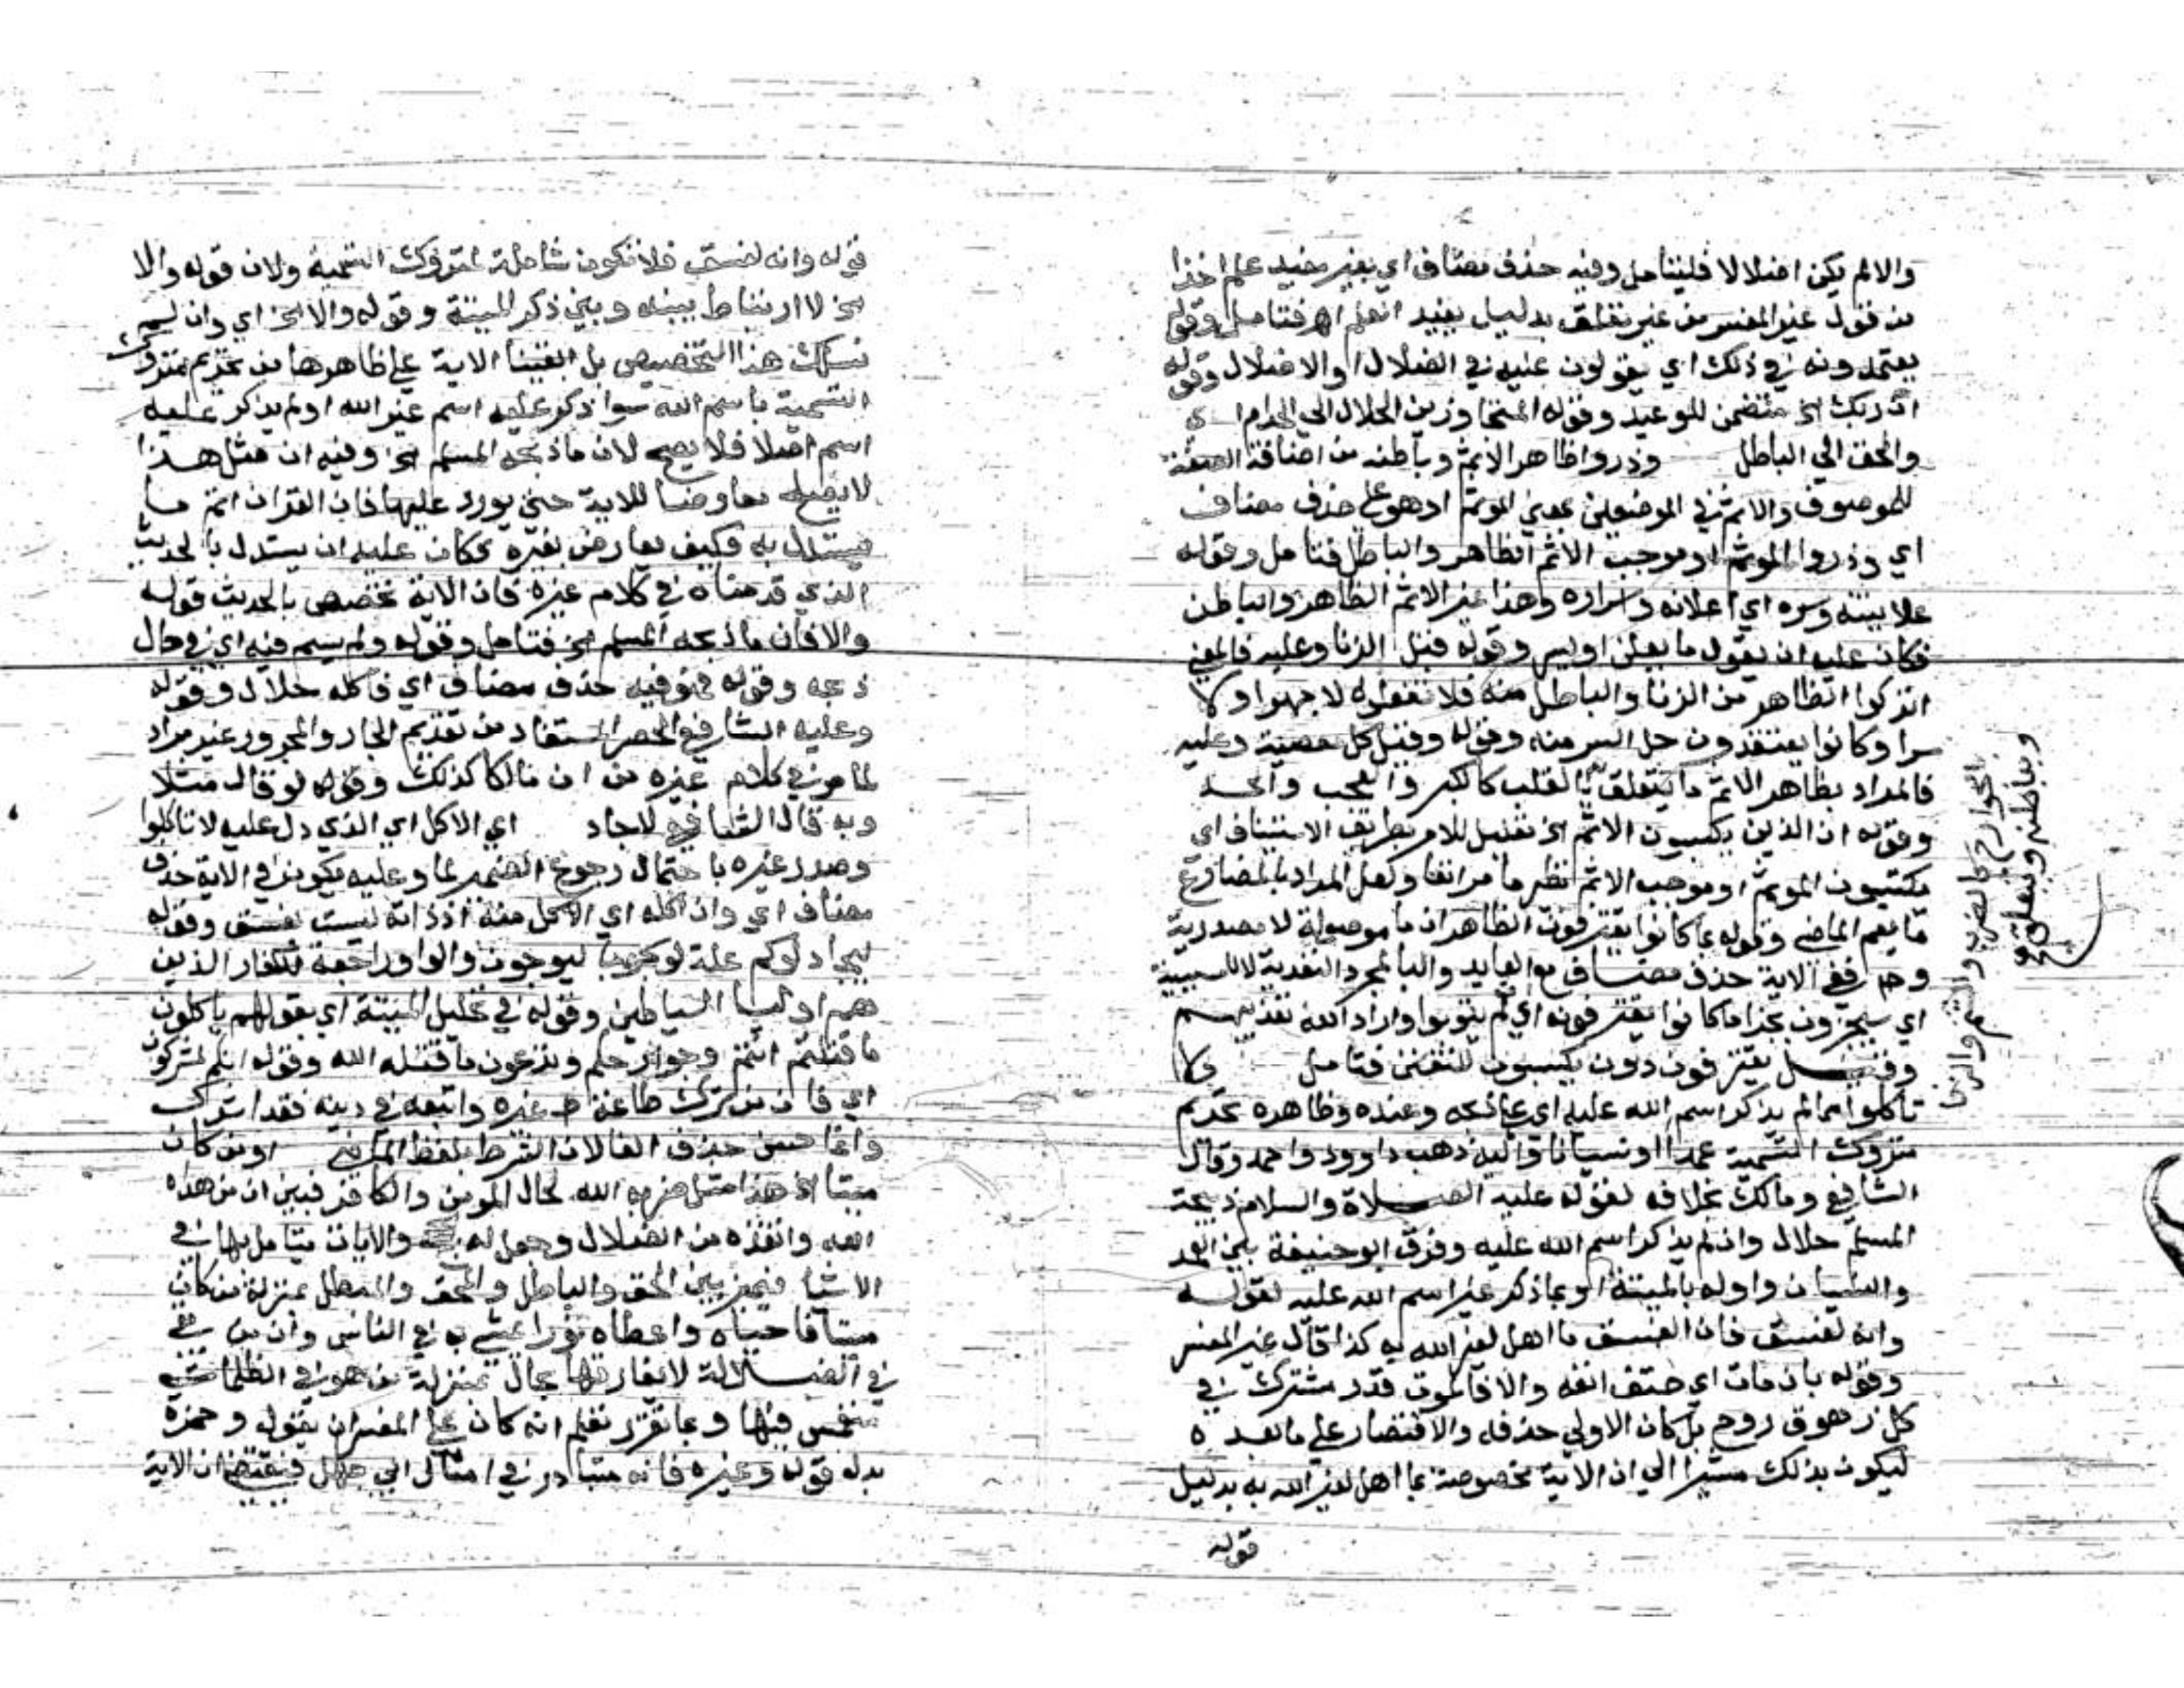 والا لم يكن اضلالا فليتامل وفيه حذف مضاف اي بغير مفيد علم اخذا
من قول غير المفسر من غير تعلق بدليل يفيد العلم اه فتامل وقوله
يعتمدونه في ذلك اي يقولون عليه في الضلال او الاضلال وقوله
ان ربك الخ متضمن للوعيد وقوله المتجاوزين الحلال الي الحرام اي
والحق الي الباطل وذروا ظاهر الاثم وباطنه من اضافة الصفة
للموصوف والاثم في الموضعين بمعني الموثم او هو علي حذف مضاف
اي وذروا الموثم او موجب الاثم الظاهر والباطن فتامل وقوله
علانيته وسره اي اعلانه واسراره وهذا غير الاثم الظاهر والباطن
فكان عليه ان يقول ما يعلن او يسر وقوله قيل الزنا وعليه فالمعني
اتركوا الظاهر من الزنا والباطل منه فلا تفعلوه لا جهرا ولا
سرا وكانوا يعتقدون حل السر منه وقوله وقيل كل معصية وعليه
فالمراد بظاهر الاثم ما يتعلق بالقلب كالكبر والعجب والحسد
بالجوارح كالضرب والشتم والزنا
وبباطنه ما يتعلق
وقوله ان الذين يكسبون الاثم الخ تعليل للامر بطريق الاستيناف اي
يكتسبون الموثم او موجب الاثم نظير ما مر انفا ولعل المراد بالمضارع
ما يعم الماضي وقوله بما كانوا يقترفون الظاهر ان ما موصولة لا مصدرية
وح ففي الاية حذف مضاف مع العايد والبا لمجرد التعدية لا للسببية
اي سيجزون بجزا ما كانوا يقترفونه اي لم يتوبوا واراد الله تعذيبهم
وقيل يقترفون دون يكسبون للتفنن فتامل ولا
تاكلوا مما لم يذكر اسم الله عليه اي علي ذبحه وعنده وظاهره تحريم
متروك التسمية عمدا او نسيانا واليه ذهب داوود واحمد وقال
الشافعي ومالك بخلافه لقوله عليه الصلاة والسلام ذبيحة
المسلم حلال وان لم يذكر اسم الله عليه وفرق ابو حنيفة بين العمد
والنسيان واوله بالميتة او بما ذكر غير اسم الله عليه لقوله
وانه لفسق فان الفسق ما اهل لغير الله به كذا قال غير المفسر
وقوله بان مات اي حتف انفه والا فالموت قدر مشترك في
كل زهوق روح بل كان الاولي حذفه والاقتصار علي ما بعده
ليكون بذلك مشيرا الي ان الاية مخصوصة بما اهل لغير الله به بدليل
قوله
قوله وانه لفسق فلا تكون شاملة لمتروك التسمية ولان قوله والا
الخ لا ارتباط بينه وبين ذكر الميتة وقوله والا الخ اي وان لم
نسلك هذا التخصيص بل ابقينا الاية علي ظاهرها من تحريم متروك
التسمية باسم الله سوا ذكر عليه اسم غير الله او لم يذكر عليه
اسم اصلا فلا يصح لان ما ذبحه المسلم الخ وفيه ان مثل هذا
لا يصلح معارضا للاية حتي يورد عليها فان القران اتم ما
يستدل به فكيف يعارض بغيره فكان عليه ان يستدل بالحديث
الذي قدمناه في كلام غيره فان الاية تخصص بالحديث قوله
والا فان ما ذبحه المسلم الخ فتامل وقوله ولم يسم فيه اي في حال
ذبحه وقوله فهو فيه حذف مضاف اي فاكله حلال وقوله
وعليه الشافعي الحصر المستفاد من تقديم الجار والمجرور غير مراد
لما مر في كلام غيره من ان مالكا كذلك وقوله لو قال مثلا
وبه قال الشافعي لاجاد اي الاكل اي الذي دل عليه لا تاكلوا
وصدر غيره باحتمال رجوع الضمير لما وعليه يكون في الاية حذف
مضاف اي وان اكله اي الاكل منه اذ ذاته ليست بفسق وقوله
ليجادلوكم علة ليوحون والواو راجعة للكفار الذين
هم اوليا الشياطين وقوله في تحليل الميتة اي بقولهم ياكلون
ما قتلتم انتم وجوارحكم وتدعون ما قتله الله وقوله انكم لمشركون
اي فان من ترك طاعة غيره واتبعه في دينه فقد اشرك
وانما حسن حذف الفا لان الشرط بلفظ الماضي او من كان
ميتا الخ هذا مثل ضربه الله لحال المومن والكافر فبين ان من هداه
الله وانقذه من الضلال وجعل له والايات يتامل بها في
الاشيا فيميز بين الحق والباطل والمحق والمبطل بمنزلة من كان
ميتا فاحياه واعطاه نورا يمشي به في الناس وان من بقي
في الضلالة لا يفارقها بحال بمنزلة من هو في الظلمات
منغمس فيها وبما تقرر تعلم انه كان علي المفسر ان يقول وحمزة
بدله قوله وغيره فانه متبادر في امثال ابي جهل فيقتضي ان الاية